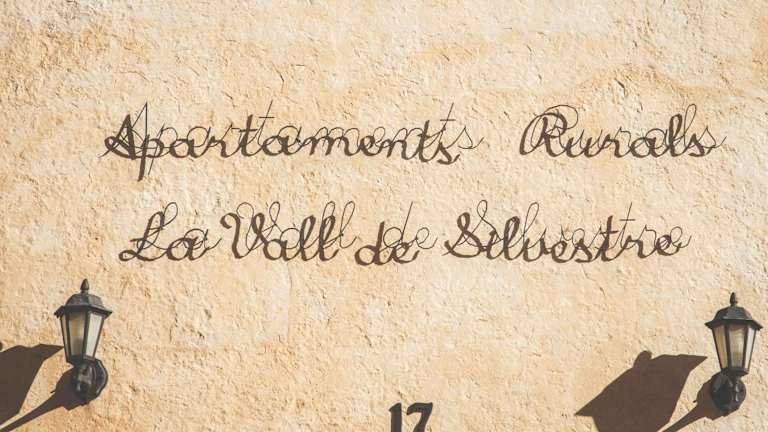 Apartaments Rurals
La Vall de Silvestre
17